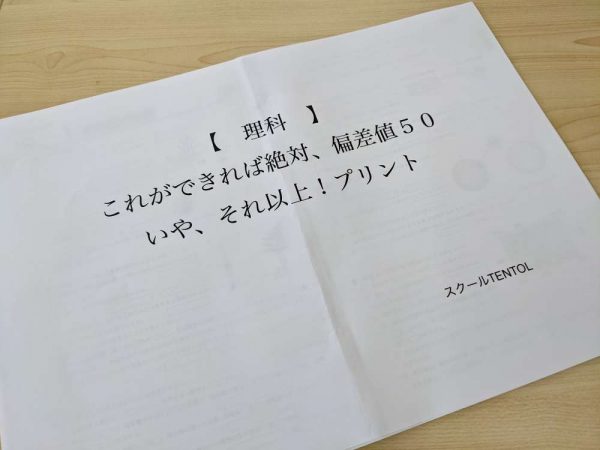 【　理科　】
これができれば絶対、偏差値５０
いや、それ以上！プリント
スクールTENTOL